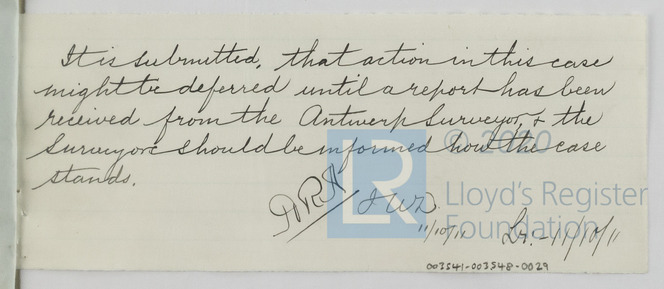 It is submitted, that action in this case
might be deferred until a report has been
received from the Antwerp Surveyor, & the
Surveyors should be informed how the case
stands.
JWD
11/10/11
Lr. - 11/10/11
© 2020
LR
Lloyd's Register
Foundation
003541-003548-0029